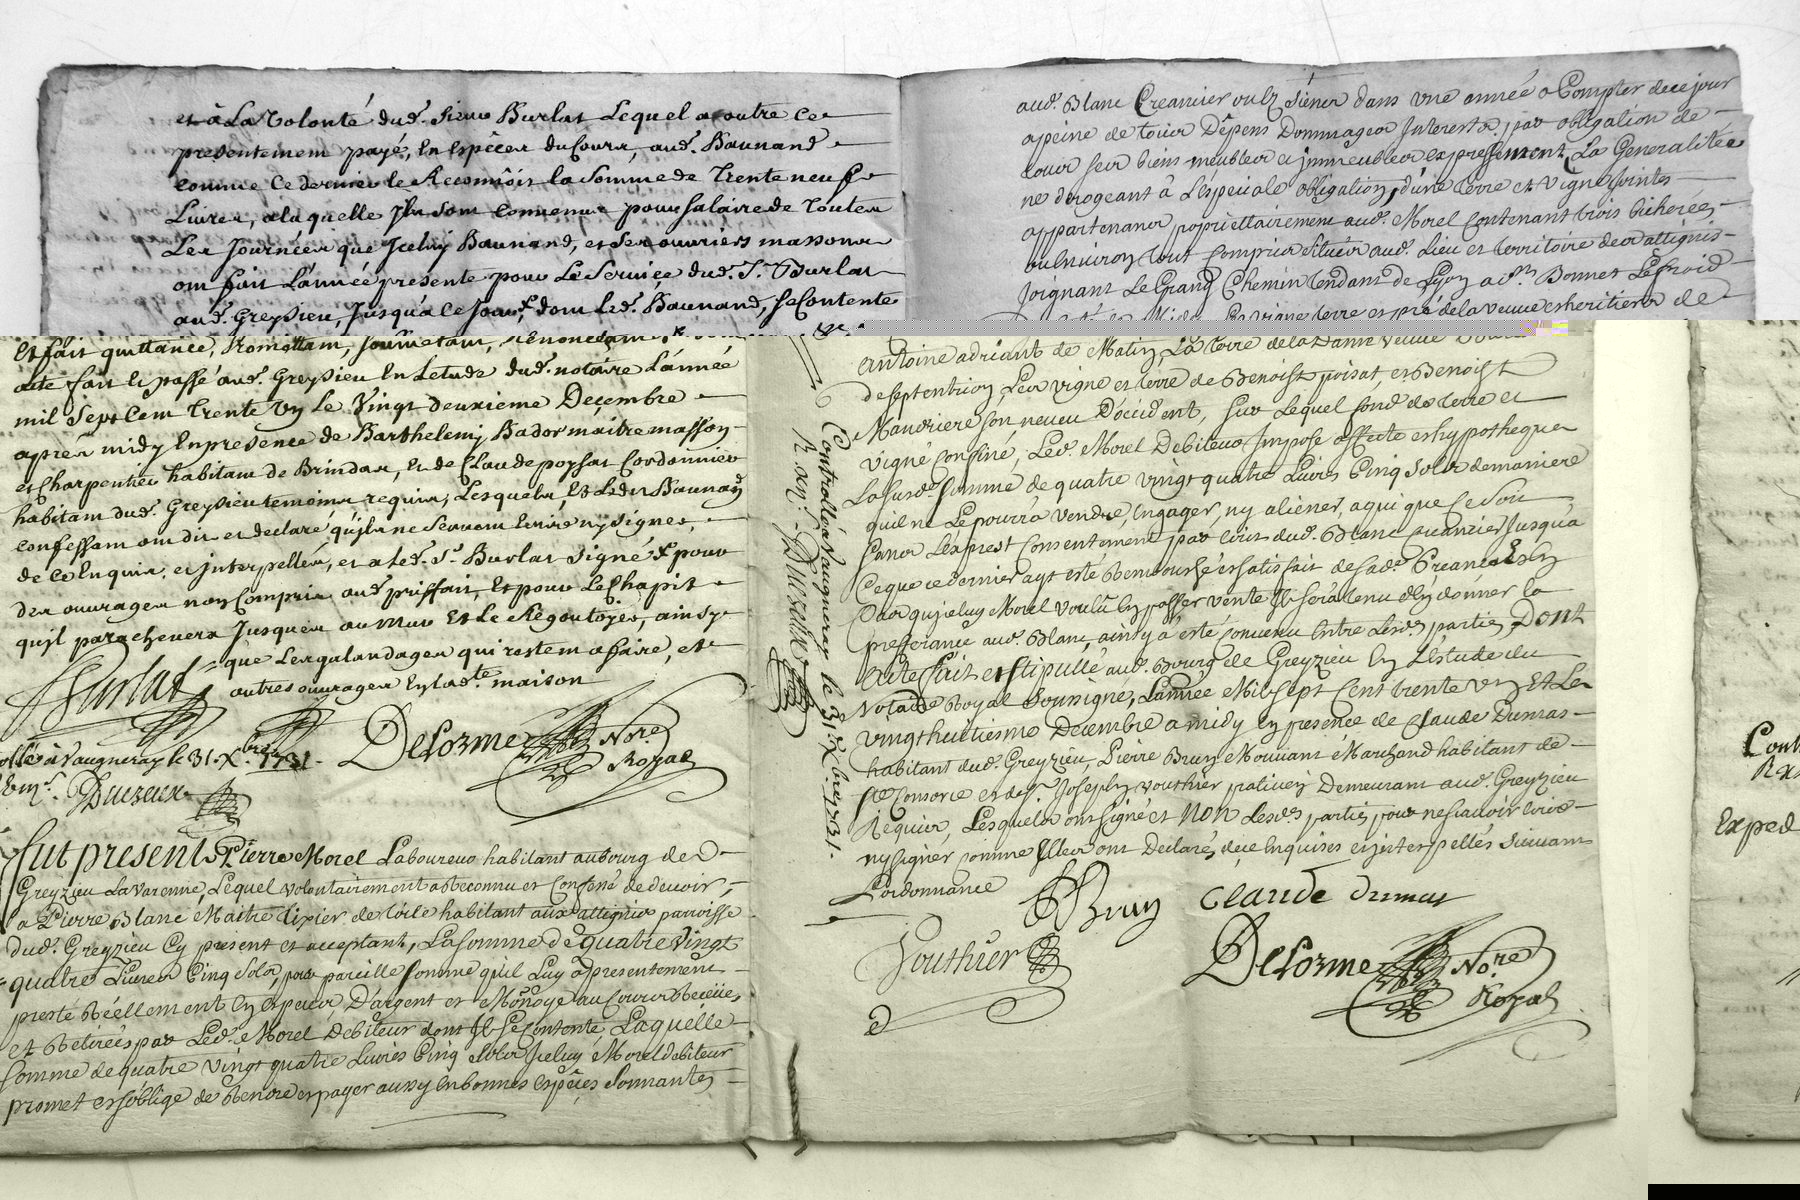 et à La volonté dud. Sieur Burlat Lequel a outre ce
presentement payé, En Espèces du Cours, aud. Baunand
comme ce dernier le Reconnoit la Somme de Trente neuf
Livres, a laquelle Ils sont convenus pour salaire de Toutes
Les Journées que Iceluy Baunand, et ses ouvriers massons
ont fait L'année presente pour Le Service dud. S. Burlat
aud. Greysieu, Jusqu'à ce Jour, dont Led. Baunand, se Contente
Et fait quittance, Promettant, soumettant, renonceant
acte fait et passé aud. Greysieu En Letude dud. notaire L'année
mil Sept Cent Trente Un Le Vingt deuxieme Decembre
apres midy En presence de Barthelemy Bador maitre masson
et Charpentier habitant de Brindas, Et de Claude poysat Cordonnier
habitant dud. Greysieu temoins requis, Lesquels, Et Led. Baunand
confessant ont dit et declaré qu'ils ne Sçavent Ecrire ny signer,
de ce Enquis, et interpellés, et a Led. Sr. Burlat signé pour
des ouvrages non Compris aud. priffait, Et pour Le Chapit
qu'il parachevera Jusques au mur Et Le Regoutoyer, ainsy
que Les galandages qui restent a faire, et
autres ouvrages En lad.te maison
Burlat
Delorme No.re
Royal
ollé à Vaugneray le 31. X.bre 1731.
Duzeux
Controllé à Vaugneray le 31. X.bre 1731.
R. 12 s.
Duzeux
Fut present S. Pierre Morel Laboureur habitant au bourg de
Greyzieu La Varenne, Lequel volontairement a Reconnu et Confessé de devoir,
a Pierre Blanc Maitre tixier de toile habitant aux attignies parroisse
dud. Greyzieu Cy present et acceptant, La somme de quatre vingt
quatre Livres Cinq Sols, pour pareille somme qu'il Luy a presentement
presté Réellement En Espéces, D'argent et Monoye au Cours Receüe,
et Retirées par Led. Morel Debiteur dont Il se Contente, Laquelle
somme de quatre vingt quatre Livres Cinq Sols Iceluy Morel debiteur
promet et s'oblige de Rendre et payer aussy En bonnes Espèces Sonnantes
aud. Blanc Creancier ou les siens dans une année a Compter de ce jour
a peine de tous Dépens Dommages Interests, par obligation de
tous ses biens meubles et immeubles expressement, La Generalitée
ne dérogeant à L'éspéciale obligation, d'une terre et vigne jointes
appartenant proprietairement aud. Morel Contenant trois bicherées
ou Environ tout Compris situés aud. Lieu et territoire des attignies
Joignant Le Grand Chemin tendant de Lyon a St. Bonnet Le froid
antoine adriant de Matin La terre de la Dame veuve
de septention, Les vigne et terre de Benoist poisat, et Benoist
Maudriere son neveu D'occident, sur Lequel fond de terre et
vigne Confiné, Led. Morel Debiteur Impose affecte et hypotheque
La susd. somme de quatre vingt quatre Livres Cinq Sols de maniere
qu'il ne Le pourra vendre, Engager, ny aliéner, a qui que Ce Soit
sans L'exprest Consentement par écrit dud. Blanc Creancier Jusqu'a
Ce que ce dernier ayt esté Remboursé et satisfait de sad. Creance Et En
Cas qu'iceluy Morel voulu En passer vente Il sera tenu d'En donner la
prefferance aud. Blanc, ainsy a été Convenu Entre Lesd. parties, Dont
Acte fait et Stipullé aud. Bourg de Greyzieu En L'Estude du
Notaire Royal Soussigné, L'année Mil Sept Cent trente Un Et Le
vingt huitiesme Décembre a midy En presence de Claude Dumas
habitant dud. Greyzieu, Pierre Brun Mouvant Marchand habitant de
Ste. Consorce et de Sr. Joseph Vouthier praticien Demeurant aud. Greyzieu
Requis, Lesquels ont signé et NON Lesd. parties pour ne sçavoir écrire
ny signer Comme Elles ont Declaré, de ce Enquises et interpellés suivant
L'ordonnance
Brun
Claude dumas
Vouthier
Delorme No.re
Royal
Cont
Exped